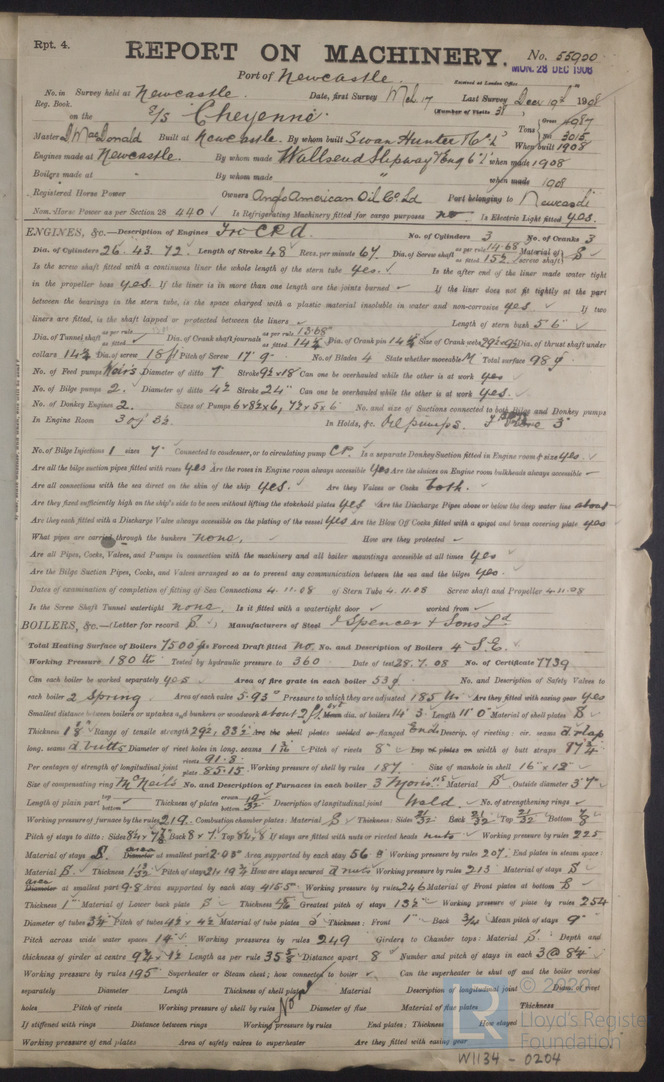 Rpt. 4.
REPORT ON MACHINERY.
No. 55900
MON. 28 DEC 1908
Port of Newcastle.
Received at London Office
No. in Survey held at Newcastle. Date, first Survey Mch 17 Last Survey Decr 19th 1908
Reg. Book.
(Number of Visits 31)
on the S/S "Cheyenne"
Tons Gross 4987
Net 3015
Master J. MacDonald Built at Newcastle. By whom built Swan Hunter & Co Ld When built 1908
Engines made at Newcastle. By whom made Wallsend Slipway & Eng Co Ld when made 1908
Boilers made at " By whom made " when made 1908
Registered Horse Power Owners Anglo American Oil Co Ld Port belonging to Newcastle
Nom. Horse Power as per Section 28 440 Is Refrigerating Machinery fitted for cargo purposes no. Is Electric Light fitted yes.
ENGINES, &c.—Description of Engines Tri CRd. No. of Cylinders 3 No. of Cranks 3
Dia. of Cylinders 26. 43. 72. Length of Stroke 48 Revs. per minute 67. Dia. of Screw shaft as per rule 14.68 as fitted 15½ Material of screw shaft S
Is the screw shaft fitted with a continuous liner the whole length of the stern tube yes. Is the after end of the liner made water tight
in the propeller boss yes. If the liner is in more than one length are the joints burned If the liner does not fit tightly at the part
between the bearings in the stern tube, is the space charged with a plastic material insoluble in water and non-corrosive yes If two
liners are fitted, is the shaft lapped or protected between the liners Length of stern bush 5'6"
Dia. of Tunnel shaft as per rule as fitted Dia. of Crank shaft journals as per rule 13.68 as fitted 14¼ Dia. of Crank pin 14¼ Size of Crank webs Dia. of thrust shaft under
collars 14¼ Dia. of screw 18 ft Pitch of Screw 17' 9" No. of Blades 4 State whether moveable M Total surface 98 ft
No. of Feed pumps Weirs Diameter of ditto Stroke Can one be overhauled while the other is at work yes
No. of Bilge pumps 2. Diameter of ditto 4½ Stroke 24" Can one be overhauled while the other is at work yes.
No. of Donkey Engines 2. Sizes of Pumps 6x8½x6, 7½x5x6 No. and size of Suctions connected to both Bilge and Donkey pumps
In Engine Room 3 of 3½ In Holds, &c. Oil pumps.
No. of Bilge Injections 1 sizes 7" Connected to condenser, or to circulating pump CP. Is a separate Donkey Suction fitted in Engine room & size yes.
Are all the bilge suction pipes fitted with roses yes Are the roses in Engine room always accessible yes Are the sluices on Engine room bulkheads always accessible —
Are all connections with the sea direct on the skin of the ship yes. Are they Valves or Cocks both.
Are they fixed sufficiently high on the ship's side to be seen without lifting the stokehold plates yes Are the Discharge Pipes above or below the deep water line above
Are they each fitted with a Discharge Valve always accessible on the plating of the vessel yes Are the Blow Off Cocks fitted with a spigot and brass covering plate yes
What pipes are carried through the bunkers none. How are they protected
Are all Pipes, Cocks, Valves, and Pumps in connection with the machinery and all boiler mountings accessible at all times yes
Are the Bilge Suction Pipes, Cocks, and Valves arranged so as to prevent any communication between the sea and the bilges yes.
Dates of examination of completion of fitting of Sea Connections 4.11.08 of Stern Tube 4.11.08 Screw shaft and Propeller 4.11.08
Is the Screw Shaft Tunnel watertight none Is it fitted with a watertight door worked from
BOILERS, &c.—(Letter for record S) Manufacturers of Steel J Spencer & Sons Ld
Total Heating Surface of Boilers 7500 ft Is Forced Draft fitted no. No. and Description of Boilers 4 S.E.
Working Pressure 180 lb Tested by hydraulic pressure to 360 Date of test 28.7.08 No. of Certificate 7739
Can each boiler be worked separately yes Area of fire grate in each boiler 53 ft No. and Description of Safety Valves to
each boiler 2 Spring. Area of each valve 5.93" Pressure to which they are adjusted 185 lb. Are they fitted with easing gear yes
Smallest distance between boilers or uptakes and bunkers or woodwork about 2 ft. Mean dia. of boilers 14' 3" Length 11' 0" Material of shell plates S
Thickness Range of tensile strength 29½, 33½ Are the shell plates welded or flanged Ends Descrip. of riveting: cir. seams d. rlap
long. seams d butts Diameter of rivet holes in long. seams Pitch of rivets 8" Lap of plates or width of butt straps 17¾
Per centages of strength of longitudinal joint rivets 91.8 plate 85.15 Working pressure of shell by rules 187. Size of manhole in shell 16" x 12"
Size of compensating ring McNeil's No. and Description of Furnaces in each boiler 3 Moris[ons] Material S Outside diameter 3' 7"
Length of plain part top bottom Thickness of plates crown bottom Description of longitudinal joint Weld. No. of strengthening rings
Working pressure of furnace by the rules 219. Combustion chamber plates: Material S Thickness: Sides 21/32 Back 21/32 Top 21/32 Bottom
Pitch of stays to ditto: Sides Back 8 x 7 Top If stays are fitted with nuts or riveted heads nuts Working pressure by rules 225
Material of stays S. Diameter area at smallest part 2.03 Area supported by each stay 56 Working pressure by rules 207. End plates in steam space:
Material S Thickness Pitch of stays How are stays secured d nuts Working pressure by rules 213 Material of stays S
Diameter area at smallest part 9.8 Area supported by each stay 415.5 Working pressure by rules 246 Material of Front plates at bottom S
Thickness 1" Material of Lower back plate S Thickness Greatest pitch of stays 13½ Working pressure of plate by rules 254
Diameter of tubes 3¼ Pitch of tubes 4½ x 4½ Material of tube plates S Thickness: Front 1" Back ¾ Mean pitch of stays 9"
Pitch across wide water spaces 14" Working pressures by rules 249 Girders to Chamber tops: Material S. Depth and
thickness of girder at centre Length as per rule Distance apart 8 Number and pitch of stays in each 3 @ 8¼
Working pressure by rules 195 Superheater or Steam chest; how connected to boiler Can the superheater be shut off and the boiler worked
separately Diameter Length Thickness of shell plates Material Description of longitudinal joint Diam. of rivet
holes Pitch of rivets Working pressure of shell by rules None Diameter of flue Material of flue plates Thickness
If stiffened with rings Distance between rings Working pressure by rules End plates: Thickness How stayed
Working pressure of end plates Area of safety valves to superheater Are they fitted with easing gear
© 2020
LR
Lloyd's Register
Foundation
W1134 - 0204